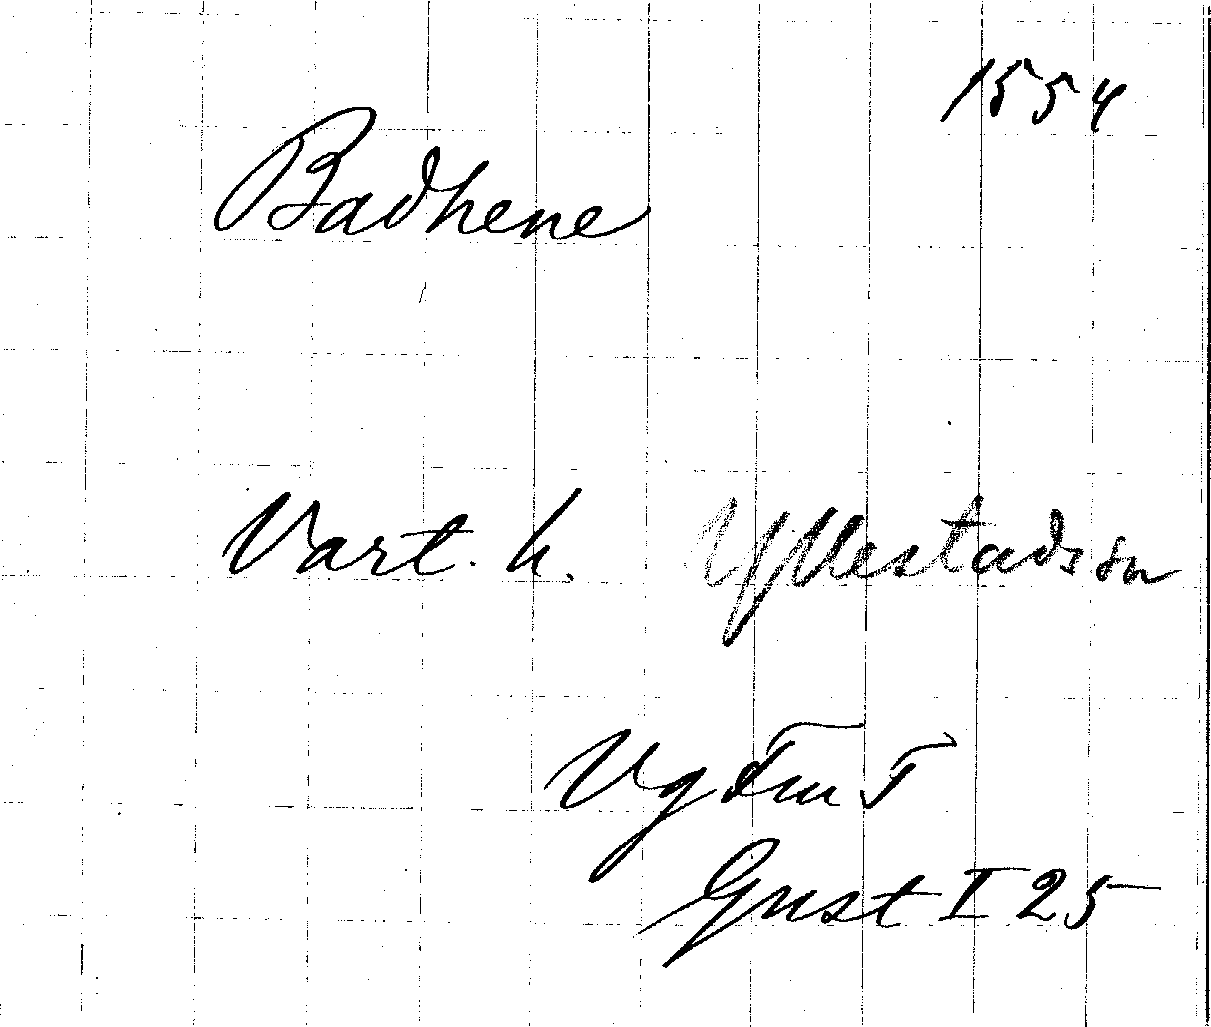 1554
Badhene
Vart. h. Yllestads sn
Vg
Gust I 25